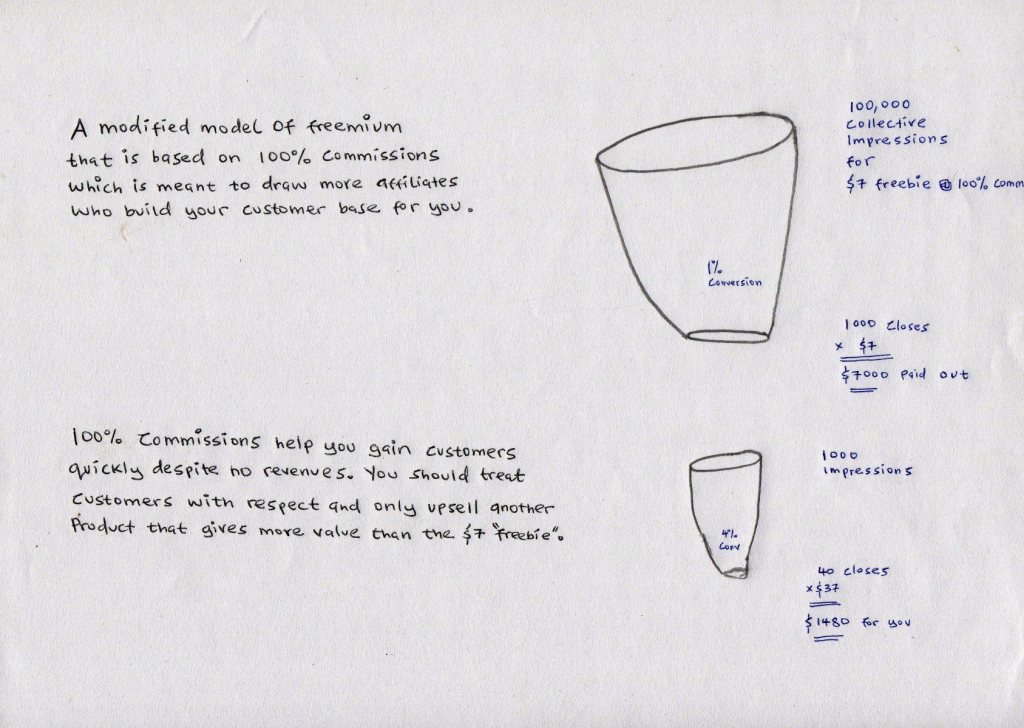 A modified model of freemium
that is based on 100% commissions
which is meant to draw more affiliates
who build your customer base for you.
100,000
Collective
Impressions
for
$7 freebie @ 100% comm
1%
Conversion
1000 closes
x $7
$7000 paid out
100% commissions help you gain customers
quickly despite no revenues. You should treat
customers with respect and only upsell another
product that gives more value than the $7 "freebie".
1000
impressions
4%
Conv
40 closes
x $37
$1480 for you